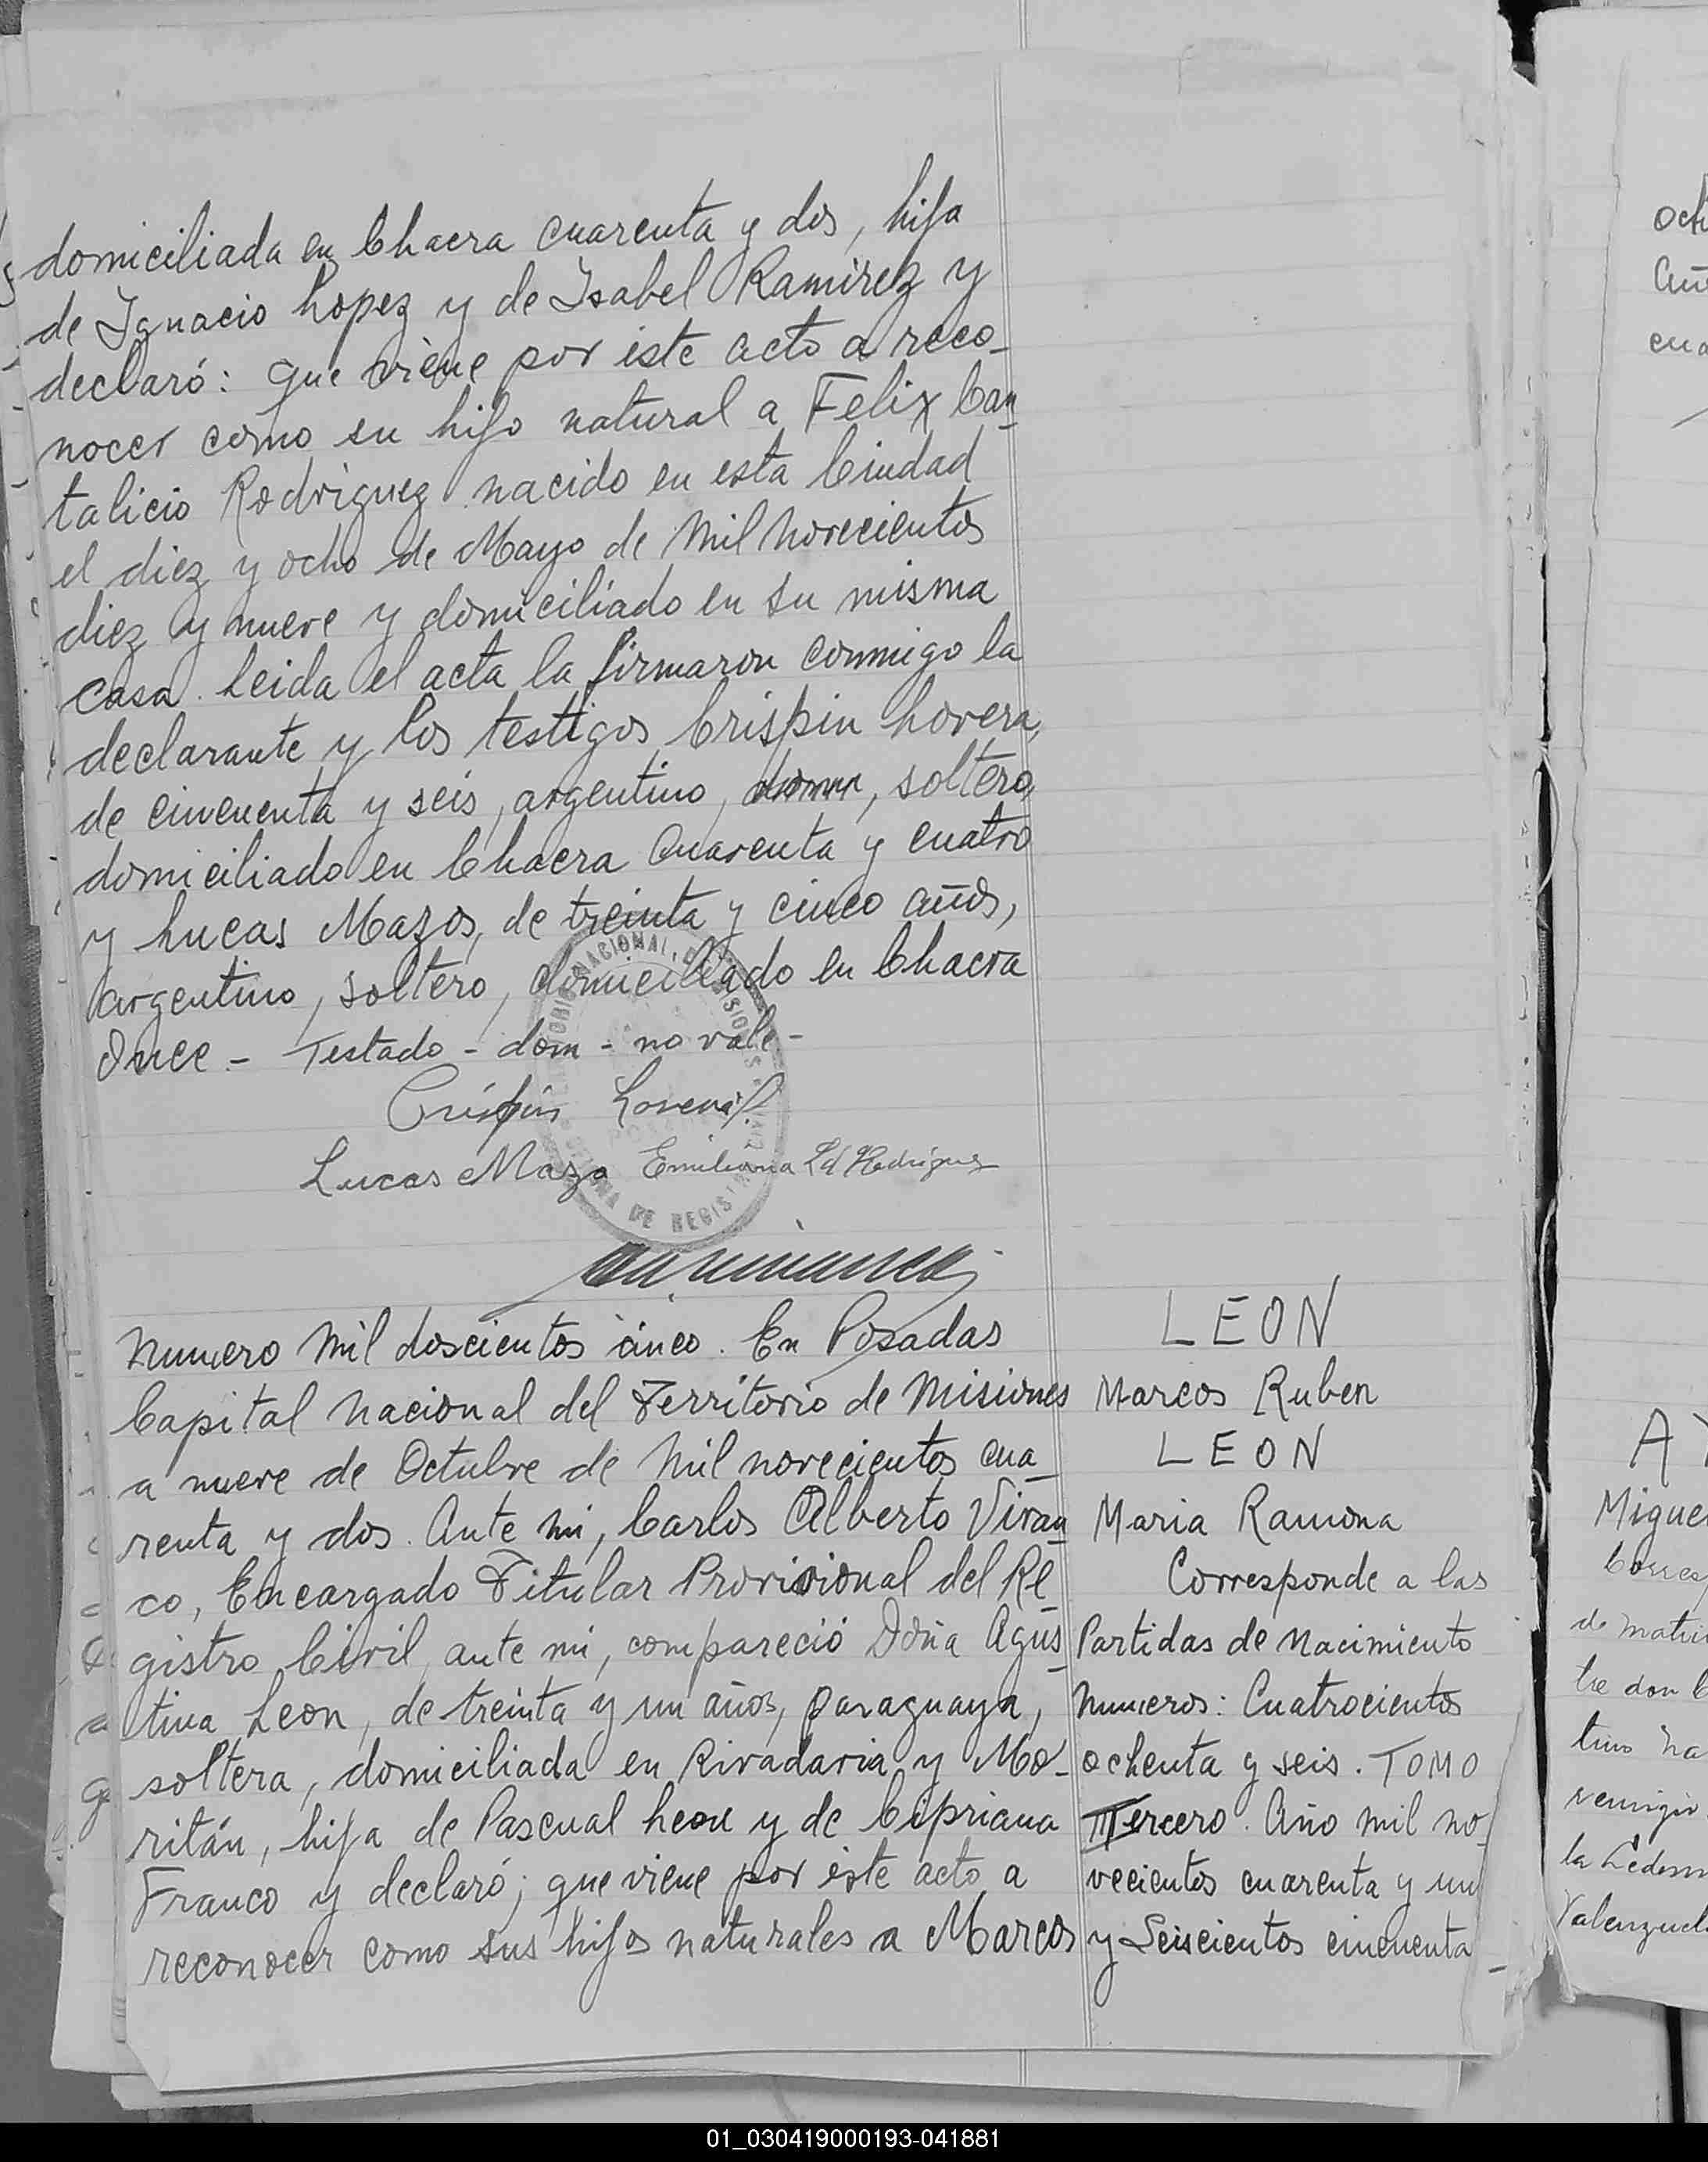 domiciliada en Chacra cuarenta y dos, hija
de Ignacio Lopez y de Isabel Ramirez y
declaró: que viene por este acto a reco-
nocer como su hijo natural a Felix Can-
talicio Rodriguez nacido en esta Ciudad
el diez y ocho de Mayo de Mil Novecientos
diez y nueve y domiciliado en su misma
casa. Leida el acta la firmaron conmigo la
declarante y los testigos Crispin Lovera,
de cincuenta y seis, argentino, dom, soltero,
domiciliado en Chacra Cuarenta y cuatro
y Lucas Mazos, de treinta y cinco años,
argentino, soltero, domiciliado en Chacra
Once - Testado - dom - no vale -
Crispin Lovera
Lucas Mazo Emiliana Ld Rodriguez
NACIONAL DE MISIONES
DE REGISTRO CIVIL
Numero Mil doscientos cinco. En Posadas
Capital Nacional del Territorio de Misiones
a nueve de Octubre de Mil novecientos cua-
renta y dos. Ante mi, Carlos Alberto Vivan-
co, Encargado Titular Provisional del Re-
gistro Civil, ante mi, compareció Doña Agus-
tina Leon, de treinta y un años, paraguaya,
soltera, domiciliada en Rivadavia y Mo-
ritán, hija de Pascual Leon y de Cipriana
Franco y declaró; que viene por este acto a
reconocer como sus hijos naturales a Marcos
LEON
Marcos Ruben
LEON
Maria Ramona
Corresponde a las
Partidas de Nacimiento
Numeros: Cuatrocientos
ochenta y seis. TOMO
Tercero. Año mil no-
vecientos cuarenta y un
y Seiscientos cincuenta-
A
Migue
Corres
de matri
tre don C
tino na
remigio
la Ledesm
Valenzuel
01_030419000193-041881